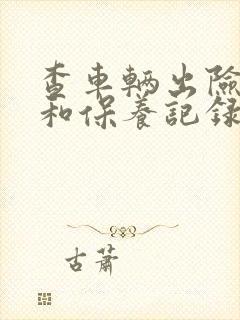 查車輛出險
和保養記録
古蕭